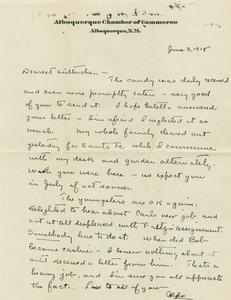 Albuquerque Chamber of Commerce
Albuquerque, N.M.
June 3, 1918
Dearest Mütterchen -
The candy was duly received
and even more promptly eaten - very good
of you to send it. I hope Estella answered
your letter - I'm afraid I neglected it as
usual. My whole family cleared out
yesterday for Santa Fe while I commune
with my desk and garden alternately.
Wish you were here - we expect you
in July if not sooner.
The youngsters are OK again.
Delighted to hear about Carl's new job - and
not at all displeased with Fritz's assignment.
Somebody has to do it. When did Bob
become cashier - I knew nothing about it
until received a letter from him. That's a
heavy job, and I'm sure you all appreciate
the fact. Love to all of you